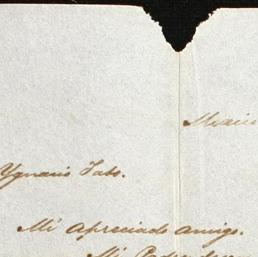 Mexico
Ygnacio Jabs.
Mi apreciado amigo.
Mi Padre